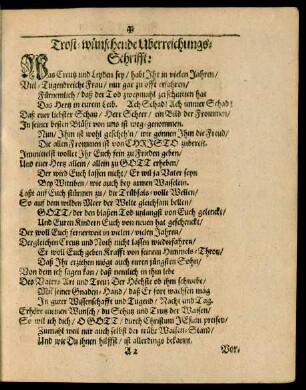 Trost-wünschende Uberreichungs-
Schrifft:
Was Creutz und Leyden sey / habt Ihr in vielen Jahren /
Viel-Tugendreiche Frau / nur gar zu offt erfahren /
Fürnemlich / daß der Tod zweymahl geschnitten hat
Das Hertz in eurem Leib. Ach Schad! Ach immer Schad!
Daß euer liebster Schatz / Herr Schröer / ein Bild der Frommen /
In seiner besten Blüthe von uns ist weg-genommen.
Nun / Ihm ist wohl gescheh'n / wir gönnen Ihm die Freud /
Die allen Frommen ist von CHRISTO zubereit.
Immittelst wollet Ihr Euch fein zu Frieden geben /
Und euer Hertz allein / allein zu GOTT erheben /
Der wird Euch lassen nicht / Er wil ja Vater seyn
Bey Wittiben / wie auch bey armen Wäiselein.
Laßt auf Euch stürmen zu / die Trübsals-volle Wellen /
So auf dem wilden Meer der Welt gleichsam bellen.
GOTT / der den blassen Tod unlängst auf Euch gelenckt /
Und Euren Kindern Euch von neuen hat geschenckt /
Der woll Euch fernerweit in vielen / vielen Jahren /
Dergleichen Creutz und Noth nicht lassen wiederfahren /
Er woll Euch geben Krafft von seinem Himmels-Thron /
Daß Ihr erziehen mögt auch euren jüngsten Sohn /
Von dem ich sagen kan / daß nemlich in ihm lebe
Des Vaters Art und Treu: Der Höchste ob ihm schwebe
Mit seiner Gnaden-Hand / daß Er fort wachsen mag
In guter Wissenschafft und Tugend / Nacht und Tag.
Erhöre meinen Wunsch / du Schutz und Trutz der Wäisen /
So wil ich dich / O GOTT / durch Christum JEsum preisen /
Zumahl weil nur auch selbst der trübe Wäisen-Stand /
Und wie Du ihnen hilffst / ist allerdings bekannt.
A 2 Vor-